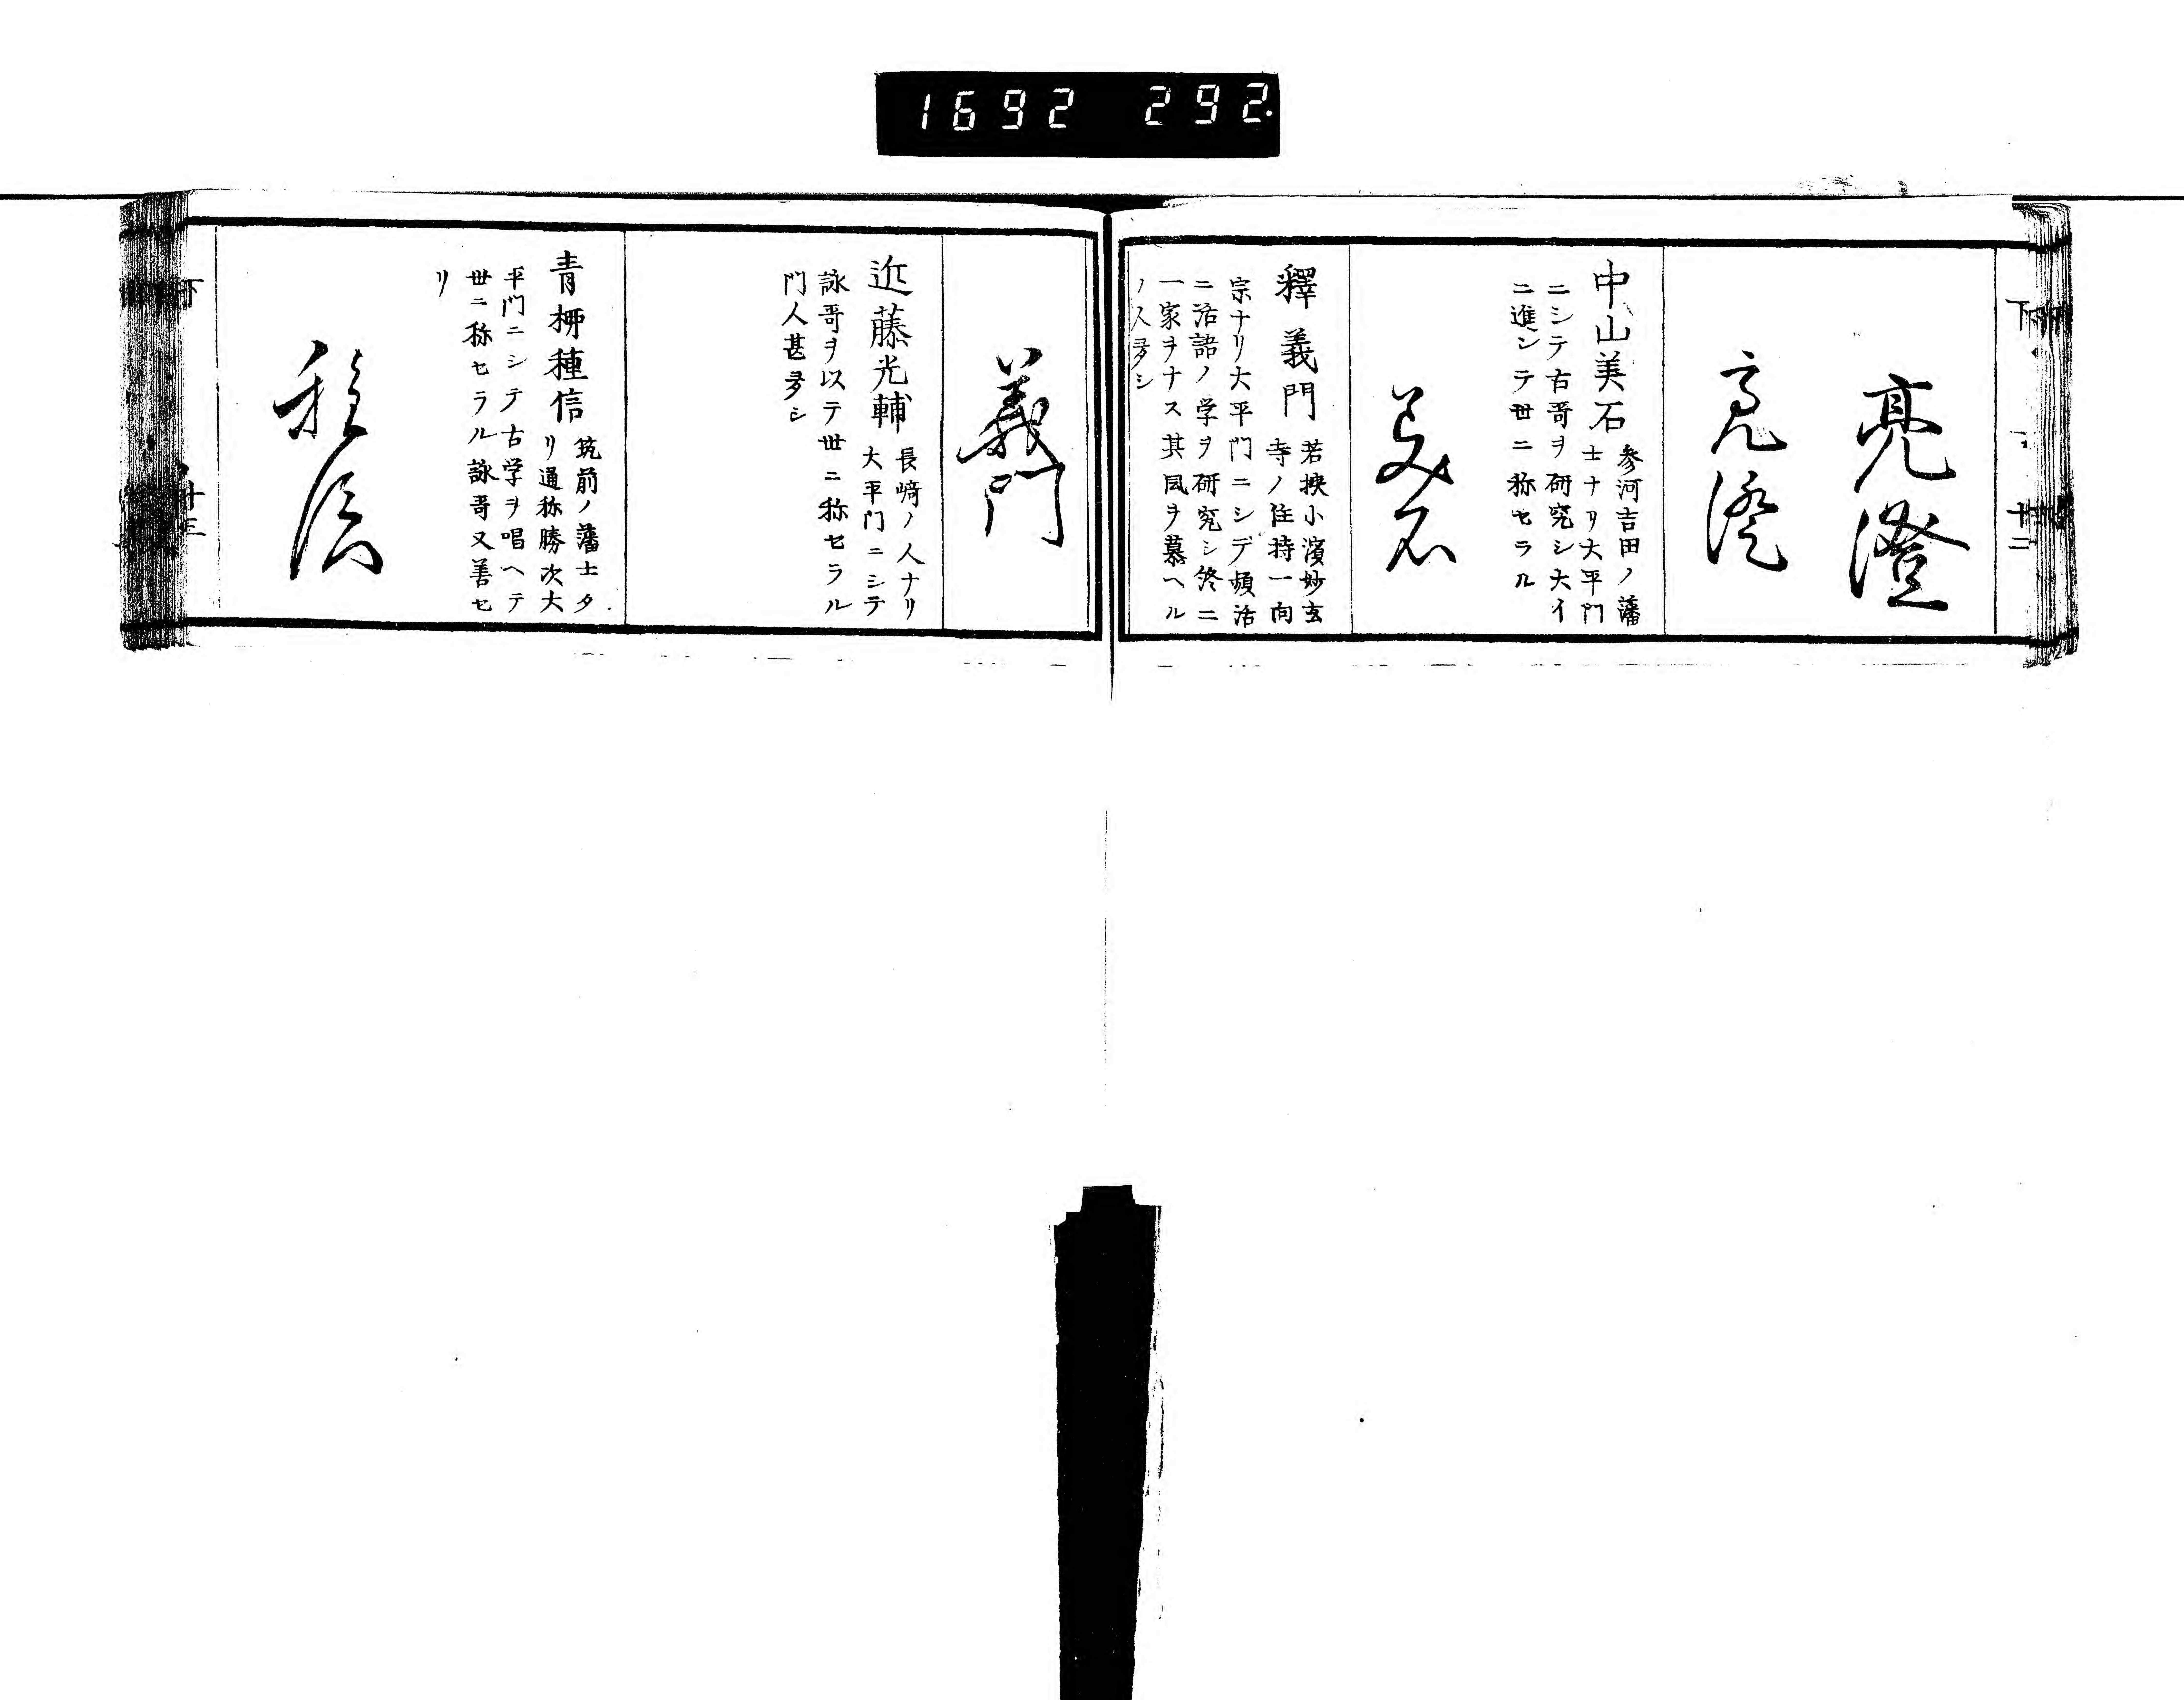 1692 292.
下 十二
亮澄
亮澄
中山美石 参河吉田ノ藩
士ナリ大平門
ニシテ古哥ヲ研究シ大イ
ニ進ンテ世ニ称セラル
美石
釋義門 若挾小濱妙玄
寺ノ住持一向
宗ナリ大平門ニシテ頻活
ニ活語ノ学ヲ研究シ終ニ
一家ヲナス其風ヲ慕ヘル
ノ人多シ
義門
近藤光輔 長﨑ノ人ナリ
大平門ニシテ
詠哥ヲ以テ世ニ称セラル
門人甚多シ
青栁種信 筑前ノ藩士タ
リ通称勝次大
平門ニシテ古学ヲ唱ヘテ
世ニ称セラル詠哥又善セ
リ
種信
下 十三